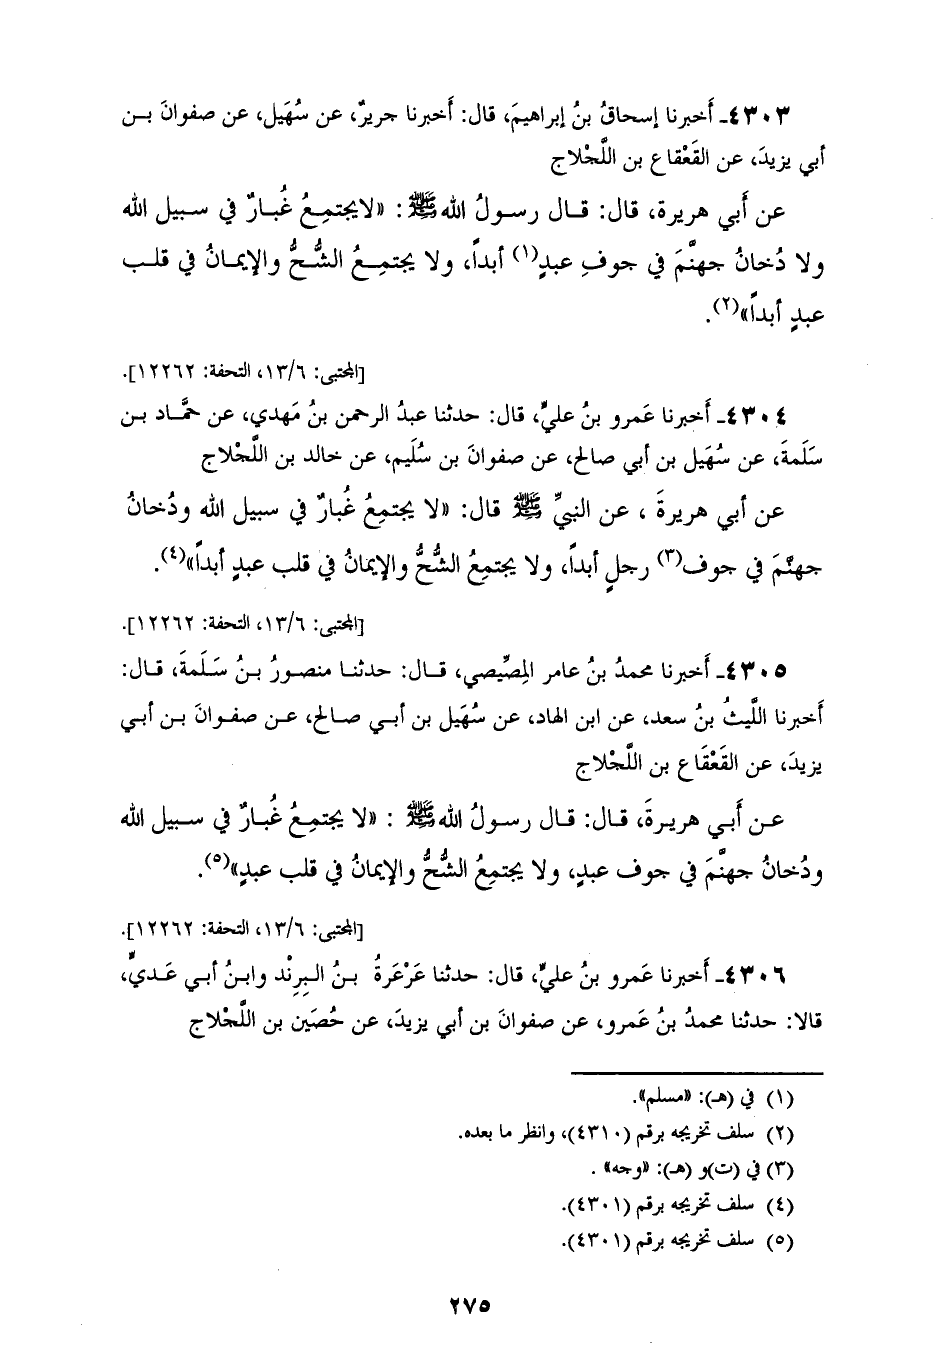 ٤٣٠٣ـ أَخبرنا إسحاقُ بنُ إبراهيمَ، قال: أَخبرنا جريرٌ، عن سُهَيل، عن صفوانَ بن
أبي يزيدَ، عن القَعْقاع بن اللَّجْلاج
عن أَبي هريرة، قال: قال رسولُ اللهﷺ: «لايجتمِعُ غُبارٌ في سبيل الله
ولا دُخانُ جهنَّمَ في جوفِ عبدٍ(١) أبداً، ولا يجتمِعُ الشُّحُّ والإيمانُ في قلب
عبدٍ أبداً»(٢).
[المجتبى: ١٣/٦، التحفة: ١٢٢٦٢].
٤٣٠٤ـ أَخبرنا عَمرو بنُ عليٍّ، قال: حدثنا عبدُ الرحمن بنُ مَهدي، عن حمَّاد بن
سَلَمةَ، عن سُهَيل بن أبي صالح، عن صفوانَ بن سُلَيم، عن خالد بن اللَّجْلاج
عن أبي هريرةَ ، عن النبيِّ ﷺ قال: «لا يجتمِعُ غُبارٌ في سبيل الله ودُخانُ
جهنَّمَ في جوف(٣) رجلٍ أبداً، ولا يجتمِعُ الشُّحُّ والإيمانُ في قلب عبدٍ أبداً»(٤).
[المجتبى: ١٣/٦، التحفة: ١٢٢٦٢].
٤٣٠٥ـ أَخبرنا محمدُ بنُ عامر المِصِّيصي، قال: حدثنا منصورُ بنُ سَلَمةَ، قال:
أَخبرنا اللَّيثُ بنُ سعد، عن ابن الهاد، عن سُهَيل بن أبي صالح، عن صفوانَ بن أبي
يزيدَ، عن القَعْقَاع بن اللَّجْلاج
عن أَبي هريرةَ، قال: قال رسولُ اللهﷺ : «لا يجتمِعُ غُبارٌ في سبيل الله
ودُخانُ جهنَّمَ في جوف عبدٍ، ولا يجتمِعُ الشُّحُّ والإيمانُ في قلب عبدٍ»(٥).
[المجتبى: ١٣/٦، التحفة: ١٢٢٦٢].
٤٣٠٦ـ أَخبرنا عَمرو بنُ عليٍّ، قال: حدثنا عَرْعَرةُ بنُ البِرِنْد وابنُ أبي عَديٍّ،
قالا: حدثنا محمدُ بنُ عَمرو، عن صفوانَ بن أبي يزيدَ، عن حُصَين بن اللَّجْلاج
(١) في (هـ): «مسلم».
(٢) سلف تخريجه برقم (٤٣١٠)، وانظر ما بعده.
(٣) في (ت)و (هـ): «وجه» .
(٤) سلف تخريجه برقم (٤٣٠١).
(٥) سلف تخريجه برقم (٤٣٠١).
٢٧٥